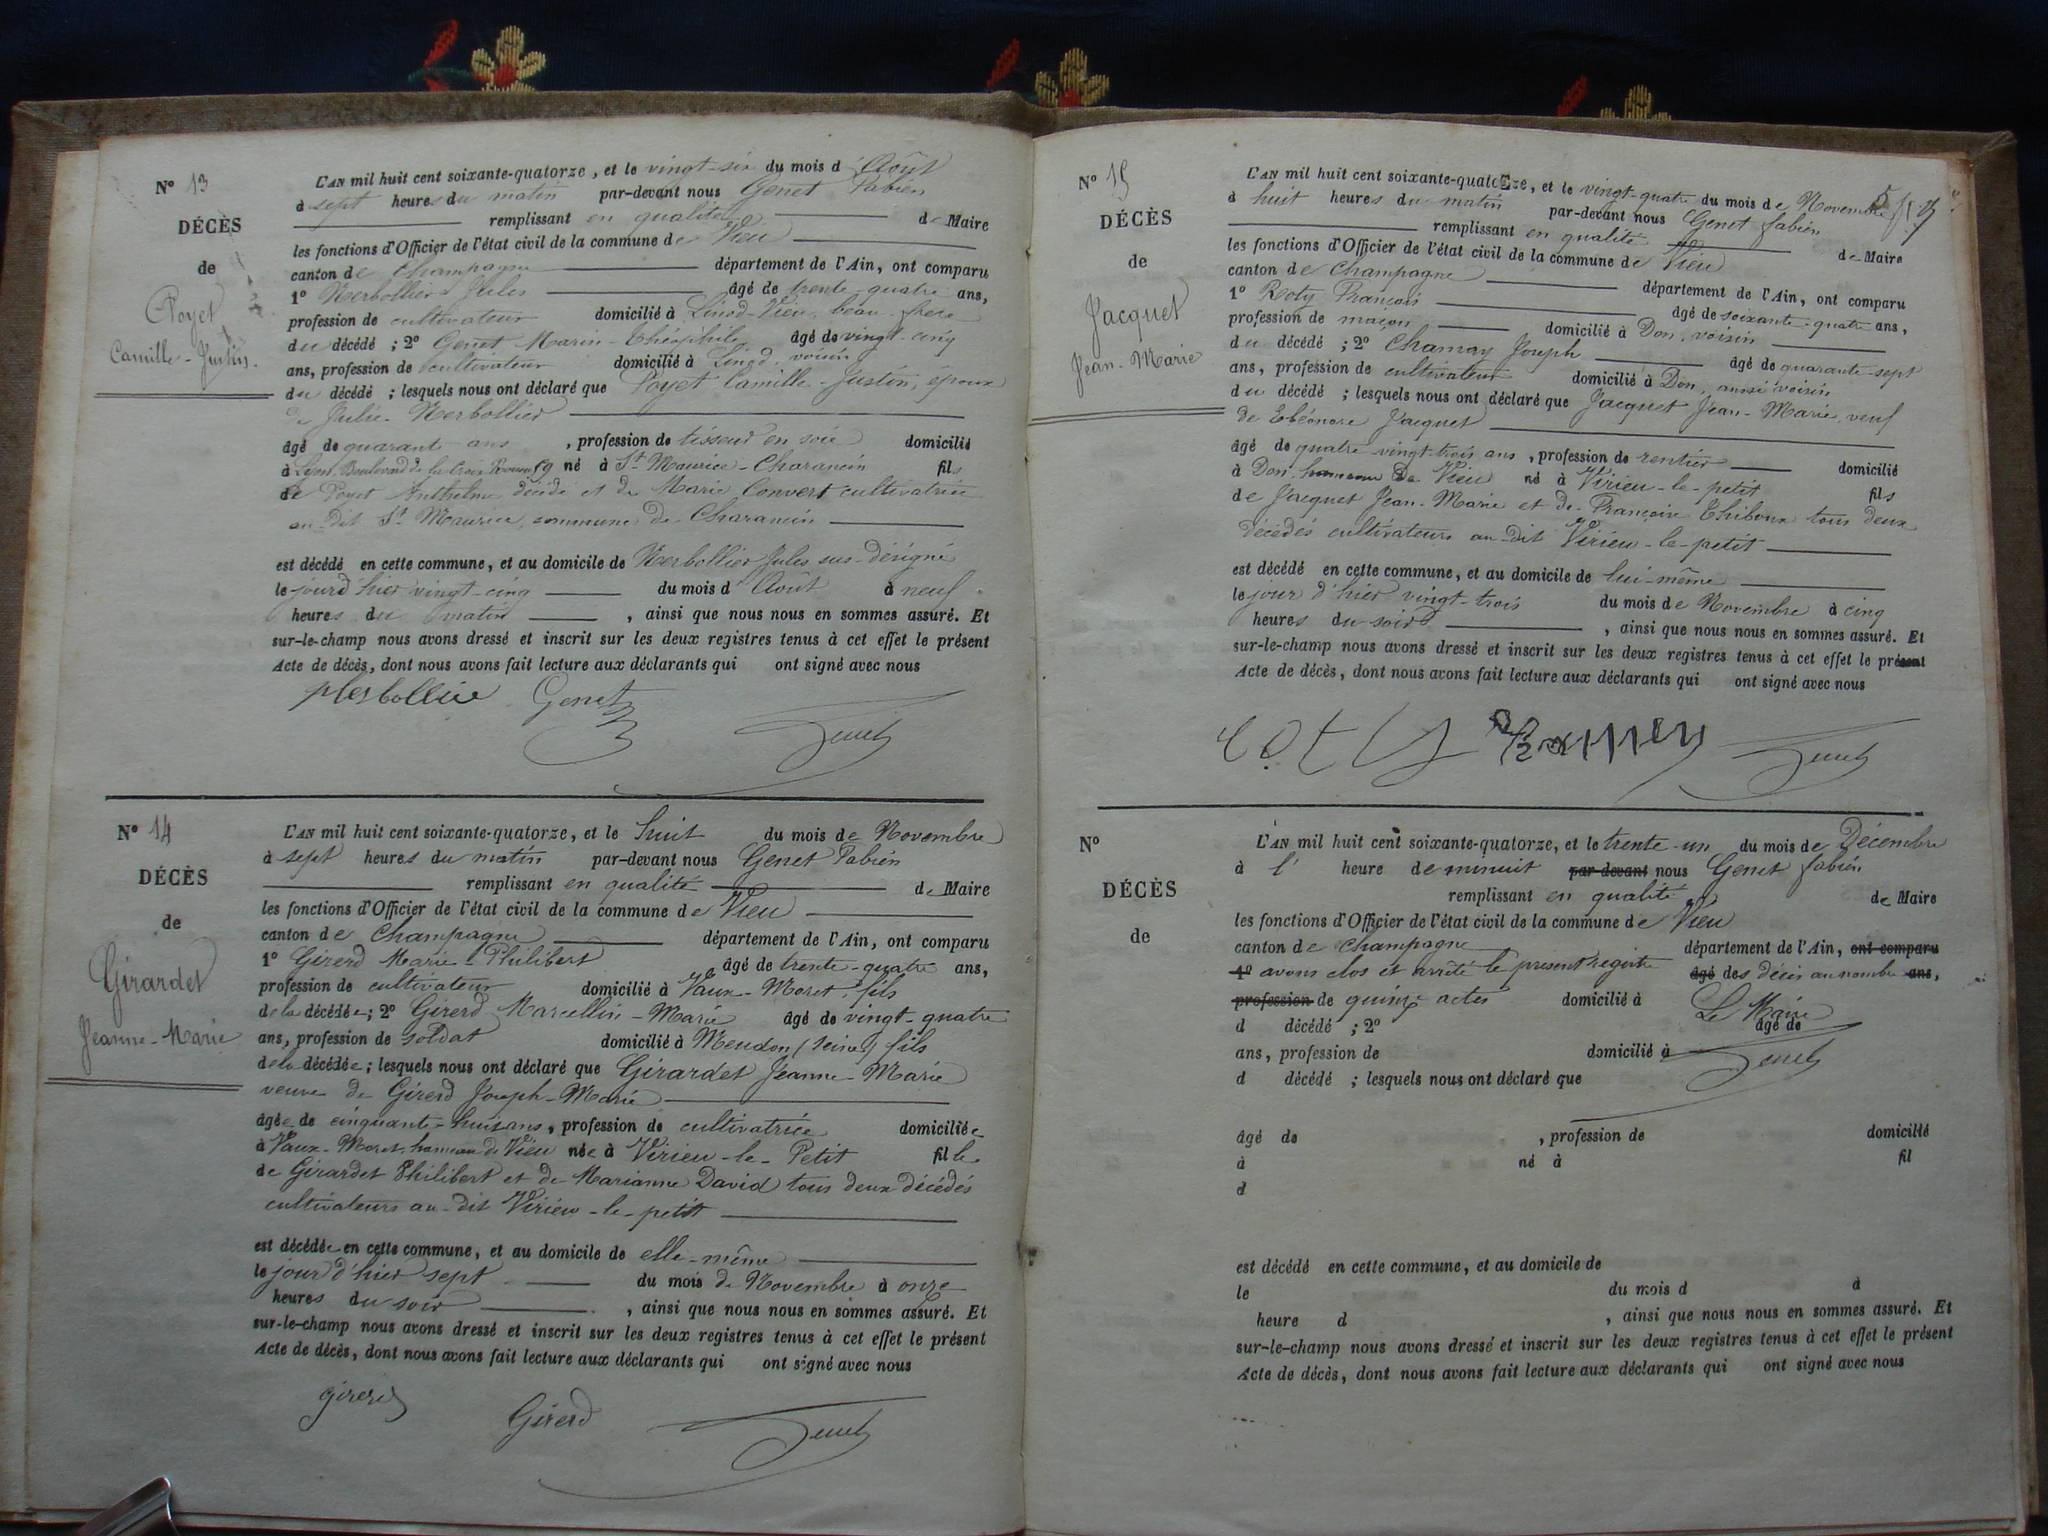 N° 13
DÉCÈS
de
Poyet
Camille-Justin.
L'AN mil huit cent soixante-quatorze, et le vingt-six du mois d'Août
à sept heures du matin par-devant nous Genet Fabien
remplissant en qualité de Maire
les fonctions d'Officier de l'état civil de la commune de Vieu
canton de Champagne département de l'Ain, ont comparu
1° Nerbollier Jules âgé de trente-quatre ans,
profession de cultivateur domicilié à Linod-Vieu, beau-frère
du décédé ; 2° Genet Marin-Théophile âgé de vingt-cinq
ans, profession de cultivateur domicilié à Linod, voisin
du décédé ; lesquels nous ont déclaré que Poyet Camille-Justin, époux
de Julie Nerbollier
âgé de quarant ans, profession de tisseur en soie domicilié
à Lyon, Boulevard de la Croix Rousse 59 né à St Maurice-Charancin fils
de Poyet Anthelme décédé et de Marie Convert cultivatrice
au-dit St Maurice, commune de Charancin
est décédé en cette commune, et au domicile de Nerbollier Jules sus-désigné
le jourd'hier vingt-cinq du mois d'Août à neuf
heures du matin, ainsi que nous nous en sommes assuré. Et
sur-le-champ nous avons dressé et inscrit sur les deux registres tenus à cet effet le présent
Acte de décès, dont nous avons fait lecture aux déclarants qui ont signé avec nous
Genet Genet
N° 14
DÉCÈS
de
Girardet
Jeanne-Marie
L'AN mil huit cent soixante-quatorze, et le huit du mois de Novembre
à sept heures du matin par-devant nous Genet Fabien
remplissant en qualité de Maire
les fonctions d'Officier de l'état civil de la commune de Vieu
canton de Champagne département de l'Ain, ont comparu
1° Girerd Marie-Philibert âgé de trente-quatre ans,
profession de cultivateur domicilié à Vaux-Moret, fils
de la décédée ; 2° Girerd Marcellin-Marie âgé de vingt-quatre
ans, profession de soldat domicilié à Meudon (Seine) fils
de la décédée ; lesquels nous ont déclaré que Girardet Jeanne-Marie
veuve de Girerd Joseph-Marie
âgée de cinquante-huit ans, profession de cultivatrice domiciliée
à Vaux-Moret, hameau de Vieu née à Virieu-le-Petit fille
de Girardet Philibert et de Marianne David tous deux décédés
cultivateurs au-dit Virieu-le-petit
est décédée en cette commune, et au domicile de elle-même
le jour d'hier sept du mois de Novembre à onze
heures du soir, ainsi que nous nous en sommes assuré. Et
sur-le-champ nous avons dressé et inscrit sur les deux registres tenus à cet effet le présent
Acte de décès, dont nous avons fait lecture aux déclarants qui ont signé avec nous
Girerd Girerd Genet
N° 15
DÉCÈS
de
Jacquet
Jean-Marie
L'AN mil huit cent soixante-quatorze, et le vingt-quatre du mois de Novembre
à huit heures du matin par-devant nous Genet fabien
remplissant en qualité de Maire
les fonctions d'Officier de l'état civil de la commune de Vieu
canton de Champagne département de l'Ain, ont comparu
1° Roty François âgé de soixante-quatre ans,
profession de maçon domicilié à Don, voisin
du décédé ; 2° Chamay Joseph âgé de quarante-sept
ans, profession de cultivateur domicilié à Don, aussi voisin
du décédé ; lesquels nous ont déclaré que Jacquet Jean-Marie, veuf
de Eléonore Jacquet
âgé de quatre vingt-trois ans, profession de rentier domicilié
à Don, hameau de Vieu né à Virieu-le-petit fils
de Jacquet Jean-Marie et de Françoise Thiboux tous deux
décédés cultivateurs au-dit Virieu-le-petit
est décédé en cette commune, et au domicile de lui-même
le jour d'hier vingt-trois du mois de Novembre à cinq
heures du soir, ainsi que nous nous en sommes assuré. Et
sur-le-champ nous avons dressé et inscrit sur les deux registres tenus à cet effet le présent
Acte de décès, dont nous avons fait lecture aux déclarants qui ont signé avec nous
Genet
N°
DÉCÈS
de
L'AN mil huit cent soixante-quatorze, et le trente-un du mois de Décembre
à l' heure de minuit par-devant nous Genet fabien
remplissant en qualité de Maire
les fonctions d'Officier de l'état civil de la commune de Vieu
canton de Champagne département de l'Ain, ont comparu
1° avons clos et arrêté le présent registre âgé des décès au nombre ans,
profession de quinze actes domicilié à Le Maire
d décédé ; 2° âgé de
ans, profession de domicilié à Genet
d décédé ; lesquels nous ont déclaré que
âgé de , profession de domicilié
à né à fil
d
est décédé en cette commune, et au domicile de
le du mois d à
heure d , ainsi que nous nous en sommes assuré. Et
sur-le-champ nous avons dressé et inscrit sur les deux registres tenus à cet effet le présent
Acte de décès, dont nous avons fait lecture aux déclarants qui ont signé avec nous